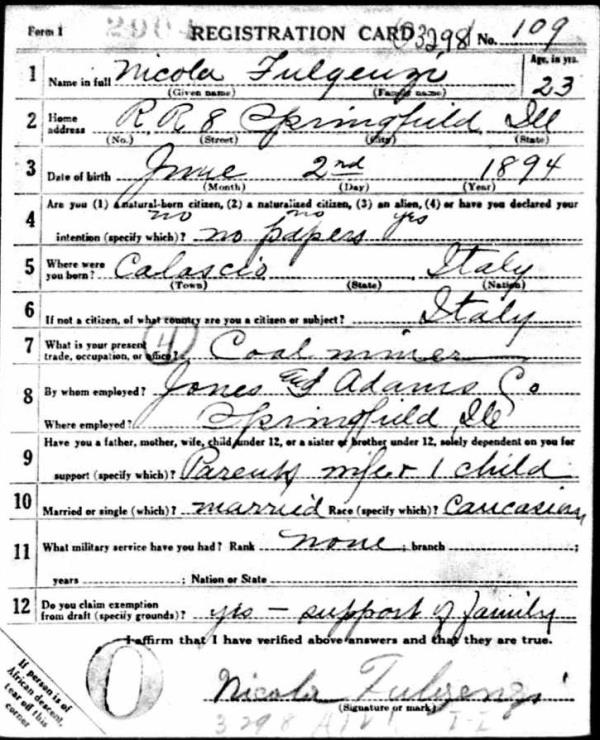 Form 1 REGISTRATION CARD 3298 No. 109
1 Name in full Nicola Fulgenzi Age, in yrs. 23
(Given name) (Family name)
2 Home address R R 8 Springfield Ill
(No.) (Street) (City) (State)
3 Date of birth June 2nd 1894
(Month) (Day) (Year)
4 Are you (1) a natural-born citizen, (2) a naturalized citizen, (3) an alien, (4) or have you declared your
no no yes
intention (specify which)? no papers
5 Where were you born? Calascio Italy
(Town) (State) (Nation)
6 If not a citizen, of what country are you a citizen or subject? Italy
7 What is your present trade, occupation, or office? 4 Coal miner
8 By whom employed? Jones and Adams Co
Where employed? Springfield Ill
9 Have you a father, mother, wife, child under 12, or a sister or brother under 12, solely dependent on you for
support (specify which)? Parents wife & 1 child
10 Married or single (which)? married Race (specify which)? Caucasian
11 What military service have you had? Rank none ; branch ;
years ; Nation or State
12 Do you claim exemption from draft (specify grounds)? yes – support of family
I affirm that I have verified above answers and that they are true.
If person is of African descent, tear off this corner
O
Nicola Fulgenzi
(Signature or mark)
3298